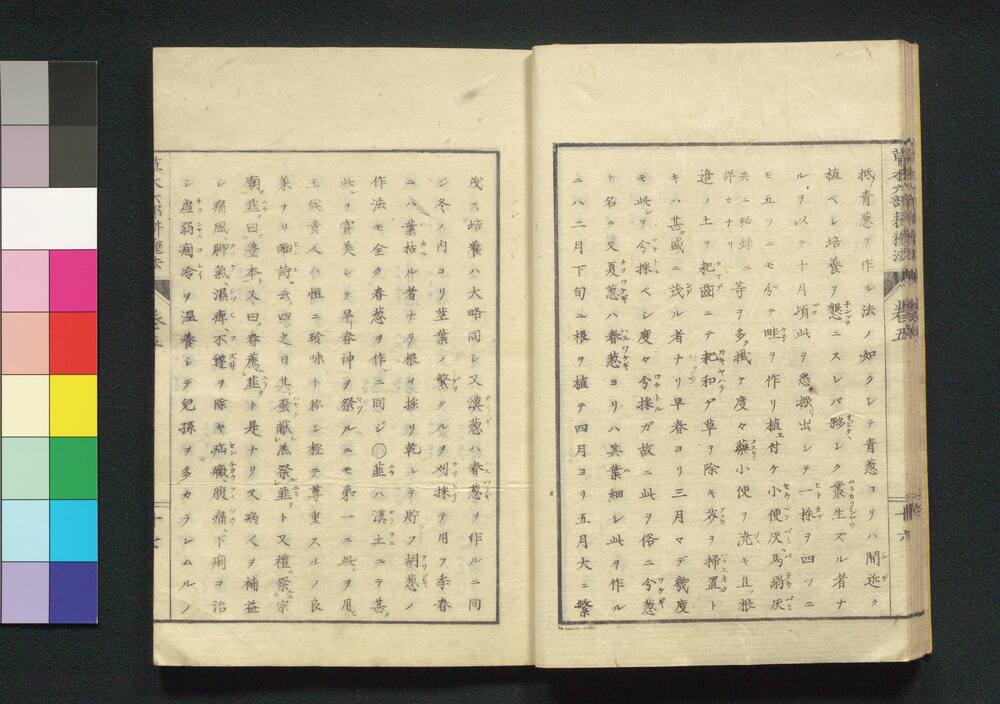 抵青葱ヲ作ル法ノ如クシテ青葱ヨリハ間近ク
植ベシ培養ヲ懇ニスレバ夥シク叢生スル者ナ
ルヲ以テ十月頃此ヲ悉掘出シテ一株ヲ四ツニ
モ五ツニモ分テ畦ヲ作リ植付ケ小便灰馬溺灰
共ニ秘録ニ詳カナリ等ヲ多ク抵テ度々藥小便ヲ澆キ且ツ根
邊ノ土ヲ耙齒ニテ耙和ゲ草ヲ除キ芥ヲ掃置ト
キハ甚盛ニ茂ル者ナリ早春ヨリ三月マデ幾度
モ此ヲ分採ベシ度々分採ガ故ニ此ヲ俗ニ分葱
ト名ク又夏葱ハ春葱ヨリハ其葉細シ此ヲ作ル
ニハ二月下旬ニ根ヲ植テ四月ヨリ五月大ニ繁
茂ス培養ハ大略同シ又漢葱ハ春葱ヲ作ルニ同
シ冬ノ内ヨリ莖葉ノ繁タルヲ刈採テ用フ季春
ニハ葉枯ル者ナリ根ヲ採リ乾シテ貯フ胡葱ノ
作法モ全ク春葱ヲ作ルニ同ジ〇韮ハ漢土ニテ甚
此レヲ賞美シテ早春神ヲ祭ルニモ第一ニ此ヲ用ヒ
王侯貴人ハ恒ニ珍味ト称シ極テ尊重スルノ良
菜ナリ豳詩ニ云四之日其蚤獻羔祭韮ト又禮祭宗
廟韮曰豊本ト又曰春薦韮ト是ナリ又病人ヲ補益
シ痛風脚氣、濕痺、不遂ヲ除キ疝癪腹痛、下痢ヲ治
シ虚弱疝冷ヲ温養シテ兒孫ヲ多カラシムルノ